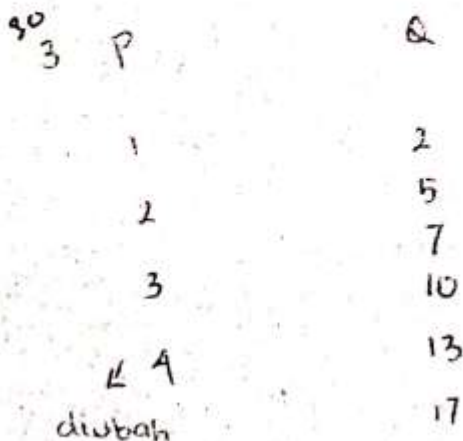 3 P Q
1 2
2 5
7
3 10
4 13
diubah 17